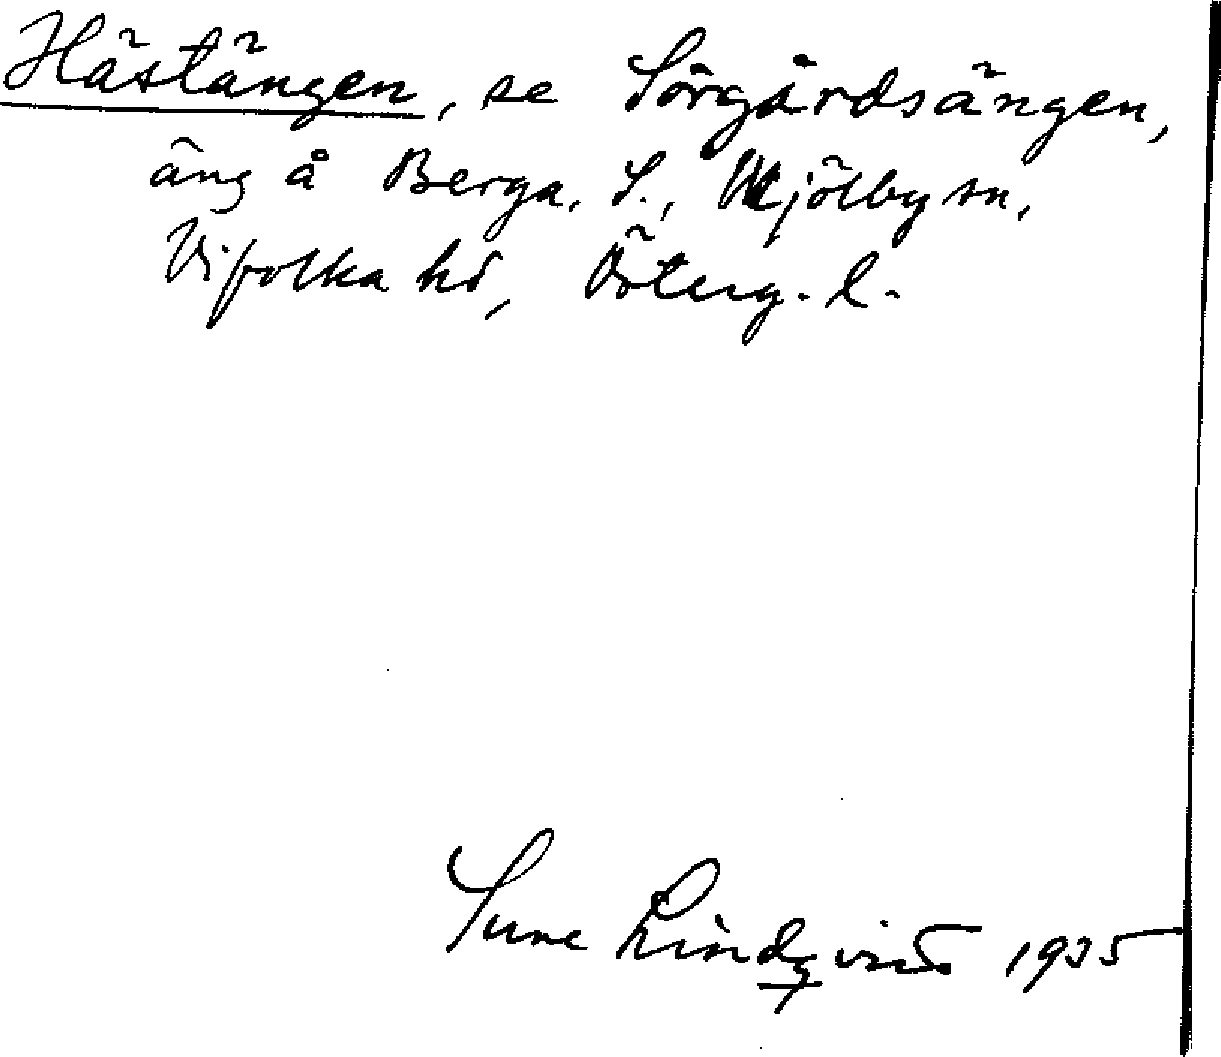 Hästängen, se Sörgårdsängen,
äng å Berga, S., Mjölby sn,
Vifolka hd, Österg. l.
Sune Lindqvist 1935